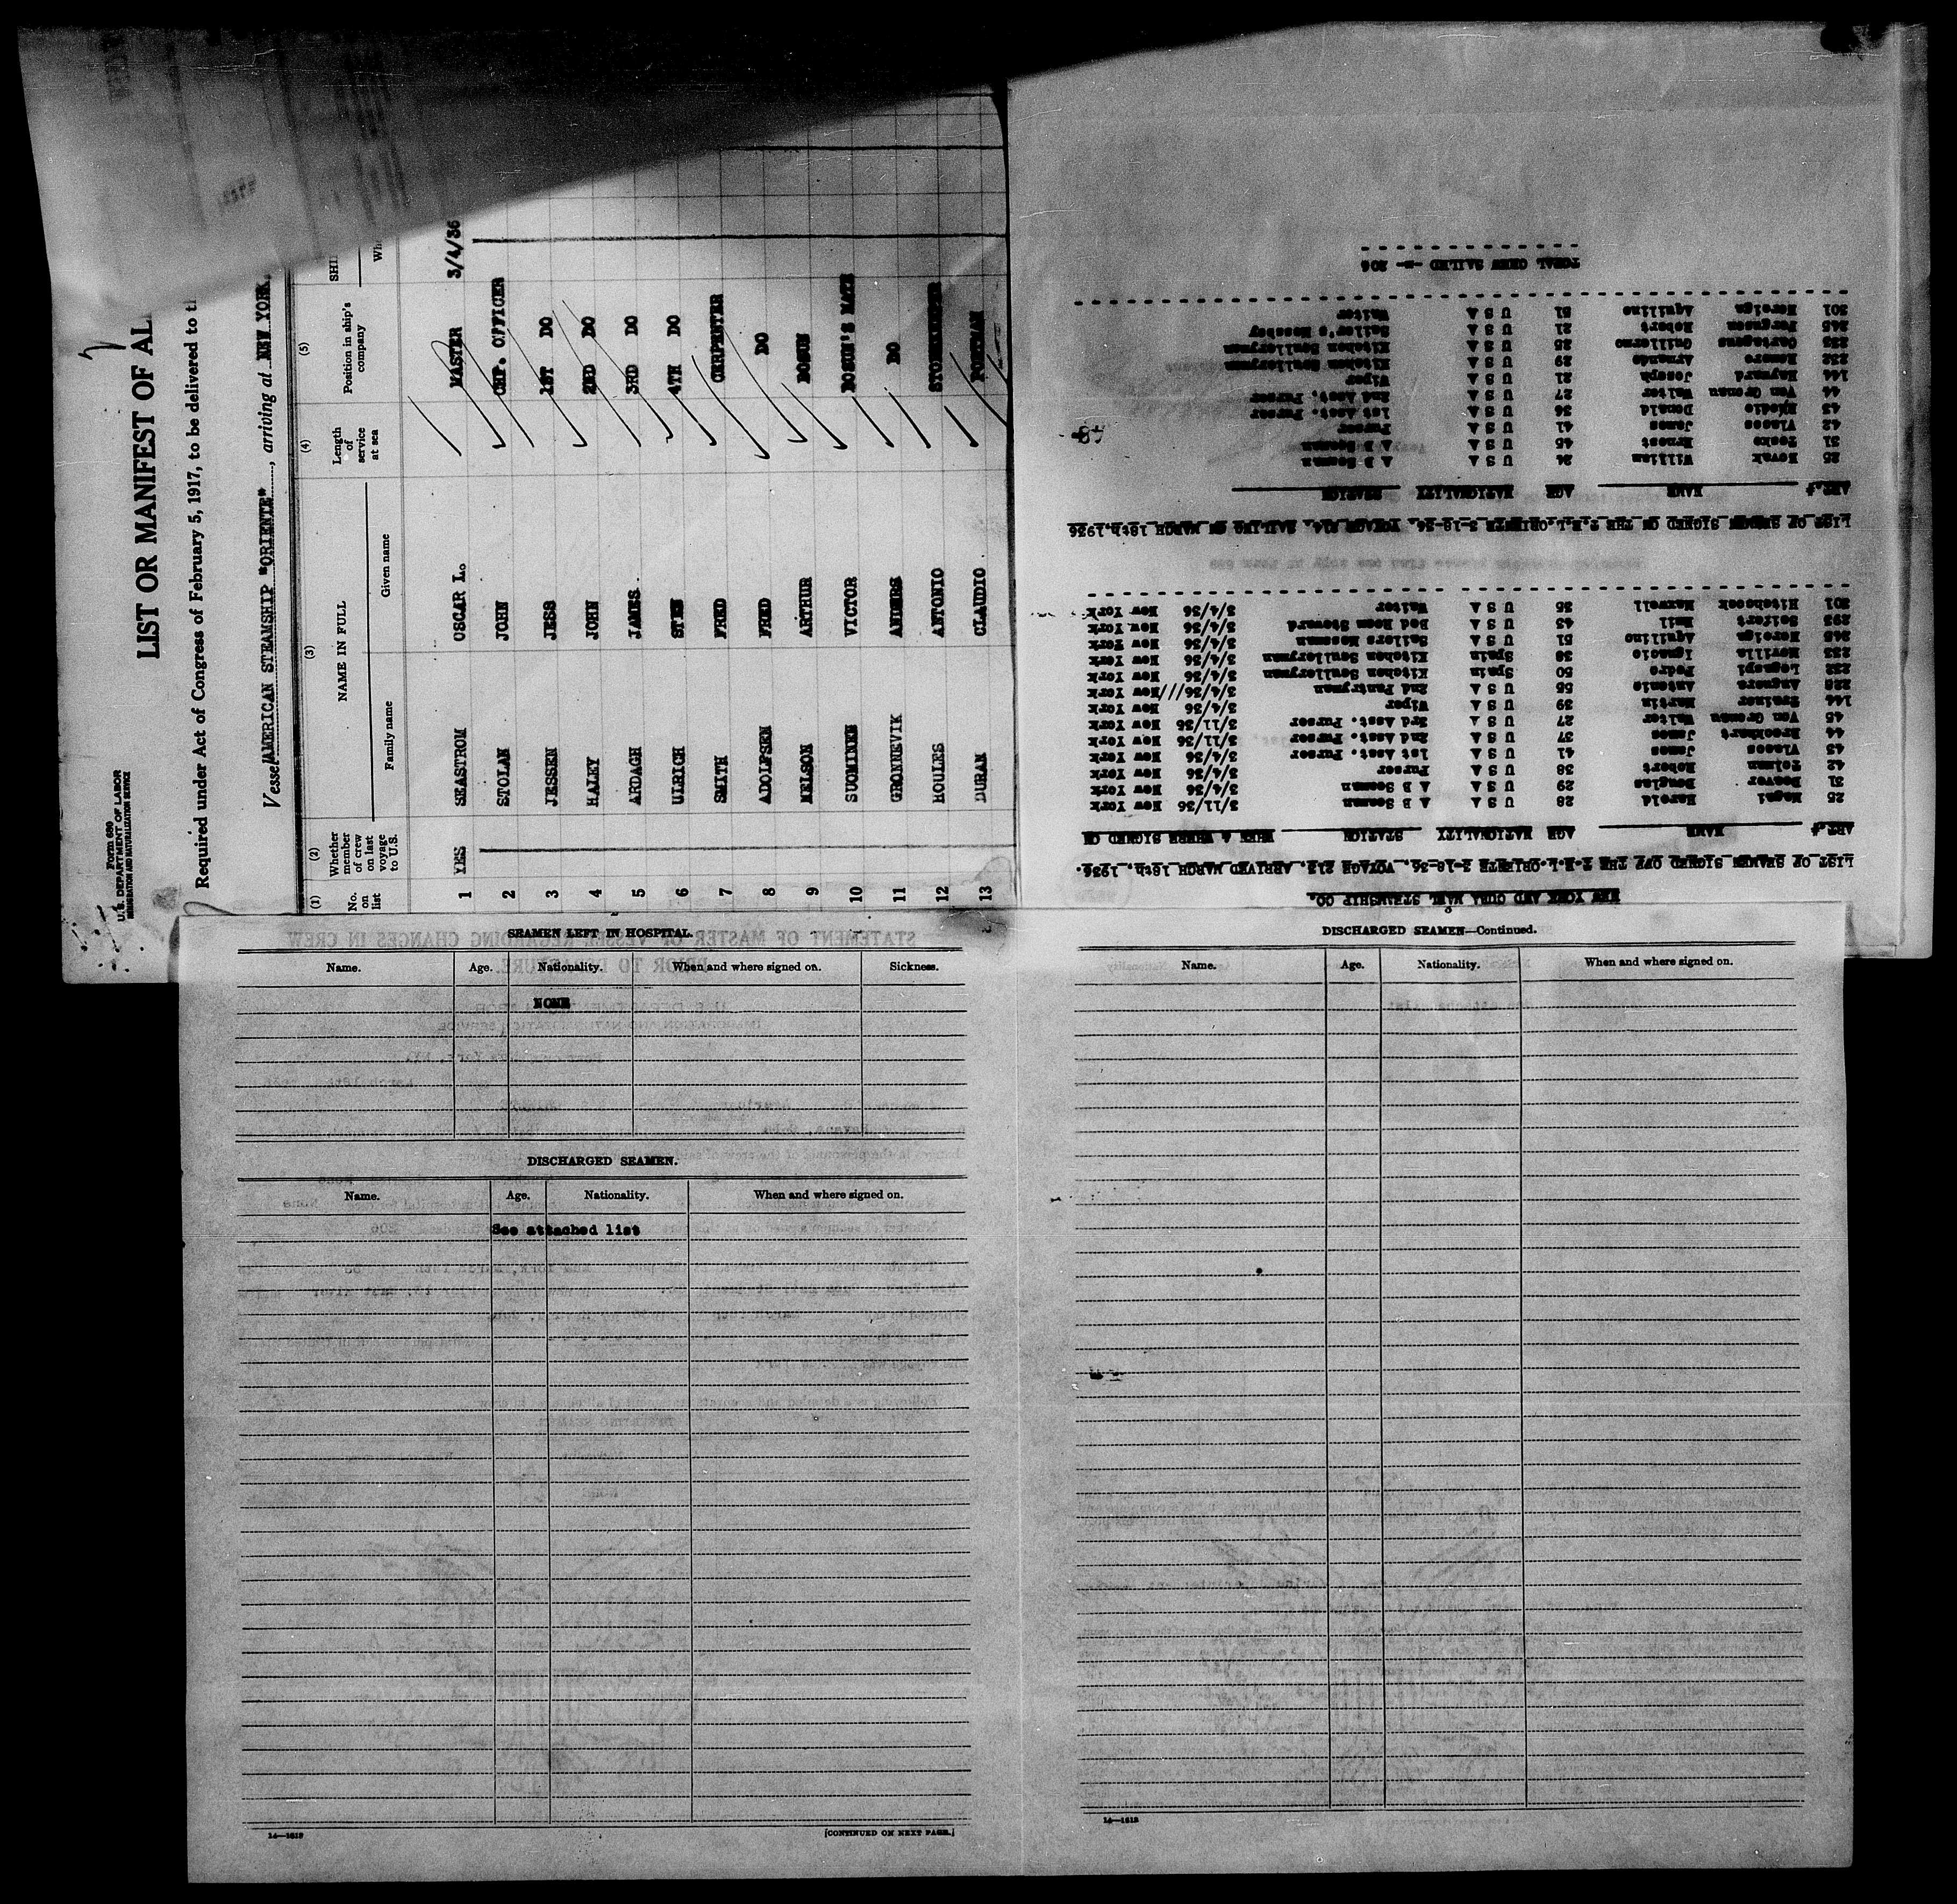 Form 680
U.S. DEPARTMENT OF LABOR
IMMIGRATION AND NATURALIZATION SERVICE
2
LIST OR MANIFEST OF AL
Required under Act of Congress of February 5, 1917, to be delivered to t
Vessel AMERICAN STEAMSHIP "ORIENTE", arriving at NEW YORK.
(1) (2) (3) (4) (5)
No. on list Whether member of crew on last voyage to U.S. NAME IN FULL Length of service at sea Position in ship's company SHI
Family name Given name
1 YES SEASTROM OSCAR L. MASTER 3/4/36
2 STOLAN JOHN CHF. OFFICER
3 JESSEN JESS 1ST DO
4 HALEY JOHN 2ND DO
5 ARDAGH JAMES 3RD DO
6 ULRICH STEN 4TH DO
7 SMITH FRED CERPENTER
8 ADOLPSEN FRED DO
9 NELSON ARTHUR BOSUN
10 SUOMINEN VICTOR BOSUN'S MATE
11 GRONNEVIK ANDERS DO
12 HOULES ANTONIO STOREKEEPER
13 DURAN CLAUDIO
NEW YORK AND CUBA MAIL STEAMSHIP CO.
LIST OF SEAMEN SIGNED OFF THE T.E.L.ORIENTE 3-18-36. VOYAGE 213. ARRIVED MARCH 18th. 1936.
ART.# NAME AGE NATIONALITY STATION WHEN & WHERE SIGNED ON
25 Magal Harold 28 U S A A B Seaman 3/11/36 New York
31 Deever Douglas 29 U S A A B Seaman 3/4/36 New York
42 Tolman Robert 38 U S A Purser 3/4/36 New York
43 Vlasos James 41 U S A 1st Asst. Purser 3/4/36 New York
44 Brockhart James 37 U S A 2nd Asst. Purser 3/11/36 New York
45 Von Gronau Walter 27 U S A 3rd Asst. Purser 3/11/36 New York
144 Trainer Martin 39 U S A Wiper 3/4/36 New York
228 Anguera Antonio 55 U S A 2nd Pantryman 3/4/36///New York
232 Legaspi Pedro 50 Spain Kitchen Scullerymen 3/4/36 New York
233 Novilla Ignacio 38 Spain Kitchen Scullerymen 3/4/36 New York
245 Noreiga Aquilino 51 U S A Sailors Messman 3/4/36 New York
293 Seifert Emil 43 U S A Bed Room Steward 3/4/36 New York
301 Hitchcock Maxwell 35 U S A Waiter 3/4/36 New York
LIST OF SEAMEN SIGNED ON THE T.E.L.ORIENTE 3-18-36. VOYAGE 214. SAILING ON MARCH 18th,1936
ART.# NAME AGE NATIONALITY STATION
25 Novak William 24 U S A A B Seaman
31 Pesko Ernest 45 U S A A B Seaman
42 Vlasos James 41 U S A Purser
43 Donald 36 U S A 1st Asst. Purser
44 Von Gronau Walter 27 U S A 2nd Asst. Purser
144 Hayward Joseph 21 U S A Wiper
232 Romero Armando 29 U S A Kitchen Scullerymen
233 Cartagena Guillermo 25 U S A Kitchen Scullerymen
245 Ferguson Robert 21 U S A Sailor's Messboy
301 Noreiga Aquilino 51 U S A Waiter
TOTAL CREW SAILED -- 206
SEAMEN LEFT IN HOSPITAL.
Name. Age. Nationality. When and where signed on. Sickness.
NONE
DISCHARGED SEAMEN.
Name. Age. Nationality. When and where signed on.
See attached list
14—1612 [CONTINUED ON NEXT PAGE.]
DISCHARGED SEAMEN—Continued.
Name. Age. Nationality. When and where signed on.
14—1612